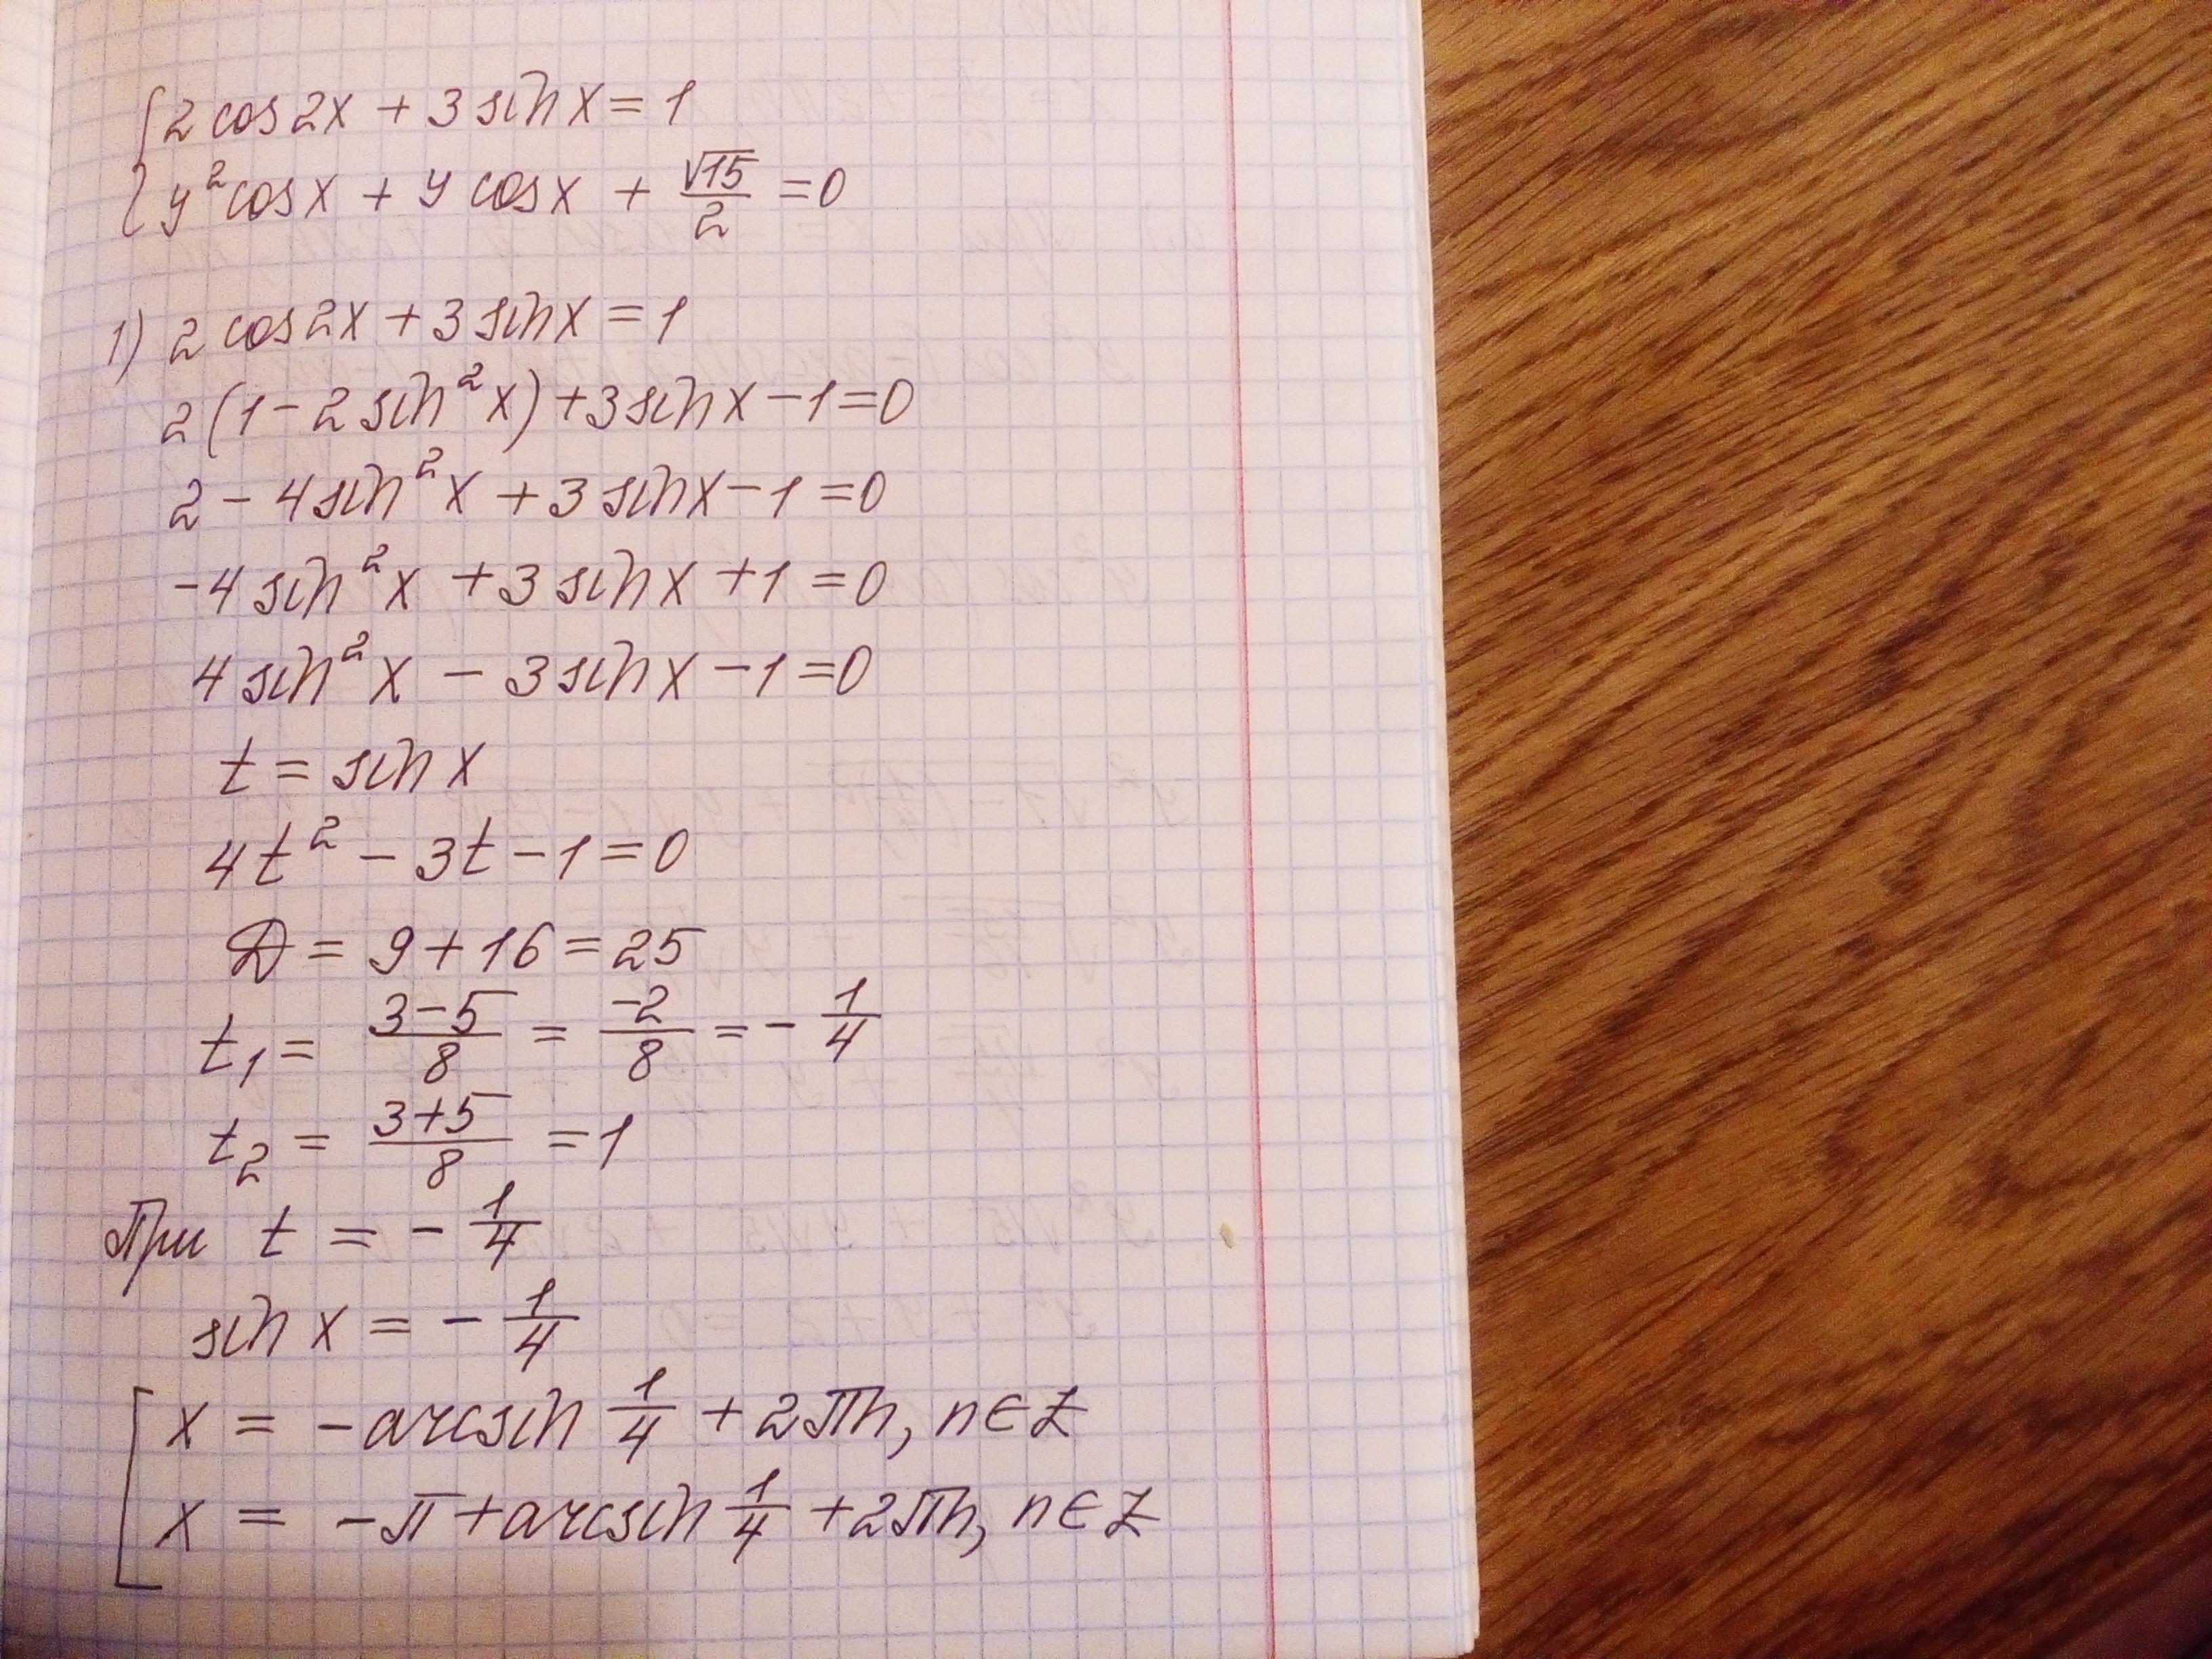 2 cos 2x + 3 sin x = 1
y² cos x + y cos x + √15/2 = 0
1) 2 cos 2x + 3 sin x = 1
2 (1 - 2 sin² x) + 3 sin x - 1 = 0
2 - 4 sin² x + 3 sin x - 1 = 0
-4 sin² x + 3 sin x + 1 = 0
4 sin² x - 3 sin x - 1 = 0
t = sin x
4t² - 3t - 1 = 0
D = 9 + 16 = 25
t₁ = (3-5)/8 = -2/8 = -1/4
t₂ = (3+5)/8 = 1
При t = -1/4
sin x = -1/4
x = -arcsin 1/4 + 2πn, n∈Z
x = -π + arcsin 1/4 + 2πn, n∈Z